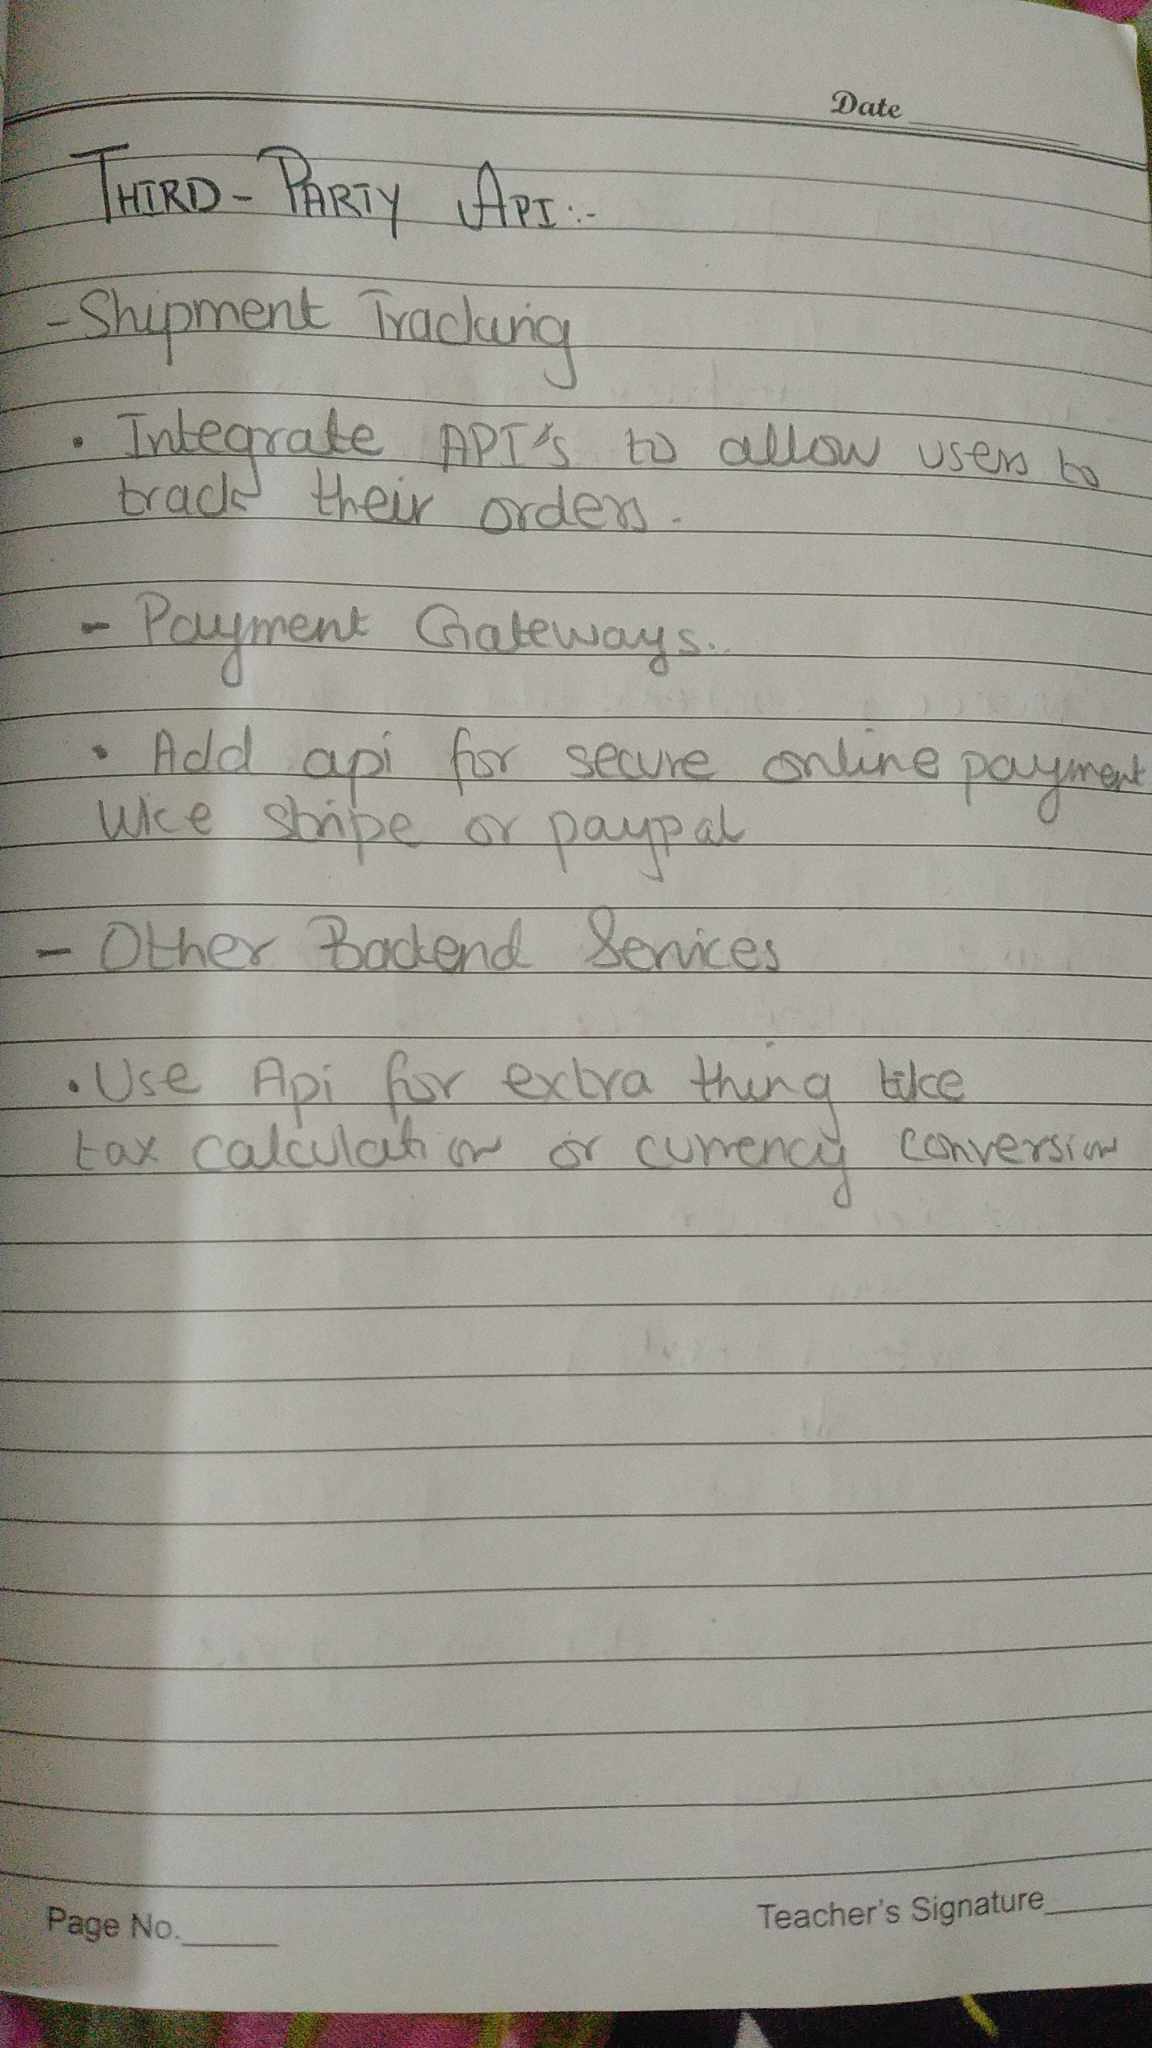 Date
THIRD-PARTY API:-
- Shipment Tracking
• Integrate API's to allow users to
track their orders.
- Payment Gateways..
• Add api for secure online payment
like stripe or paypal
- Other Backend Services
• Use Api for extra thing like
tax calculation or currency conversion
Page No.
Teacher's Signature